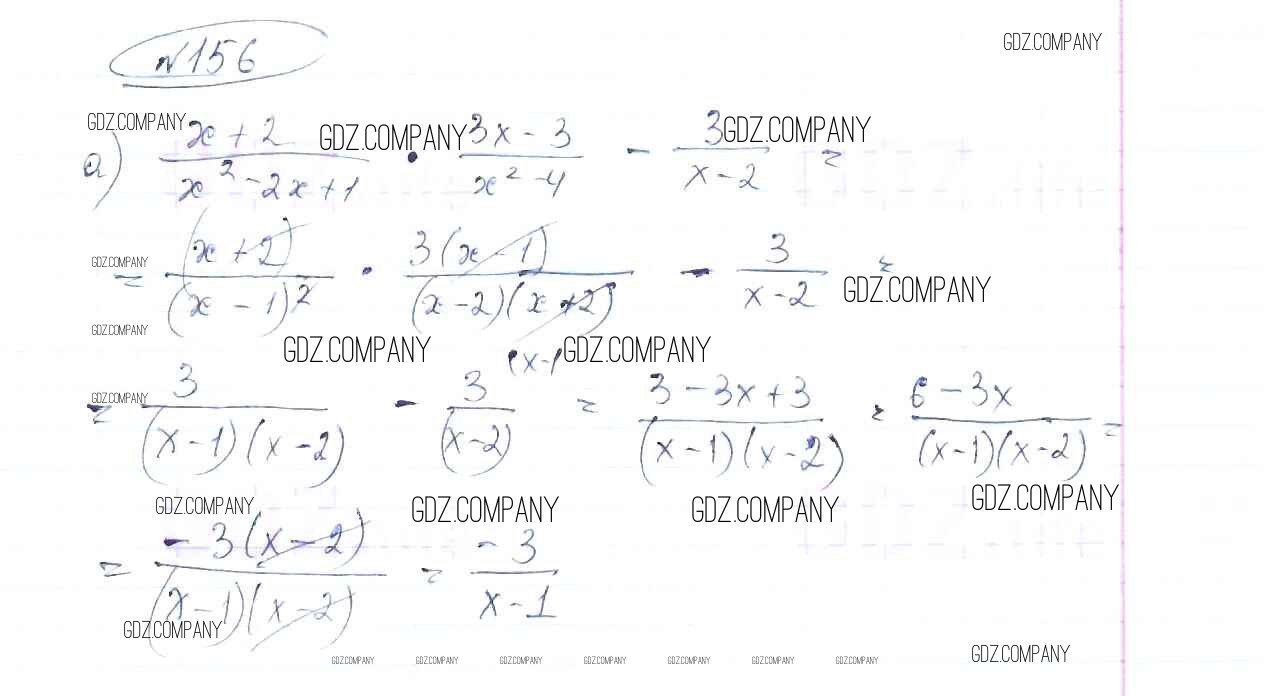 №156
GDZ.COMPANY
а) (x + 2)/(x² - 2x + 1) · (3x - 3)/(x² - 4) - 3/(x - 2) =
GDZ.COMPANY GDZ.COMPANY GDZ.COMPANY
= (x + 2)/(x - 1)² · 3(x - 1)/((x - 2)(x + 2)) - 3/(x - 2) =
GDZ.COMPANY GDZ.COMPANY
GDZ.COMPANY GDZ.COMPANY GDZ.COMPANY
(x-1
= 3/((x - 1)(x - 2)) - 3/(x - 2) = (3 - 3x + 3)/((x - 1)(x - 2)) = (6 - 3x)/((x - 1)(x - 2)) =
GDZ.COMPANY
GDZ.COMPANY GDZ.COMPANY GDZ.COMPANY GDZ.COMPANY
= -3(x - 2)/((x - 1)(x - 2)) = -3/(x - 1)
GDZ.COMPANY
GDZ.COMPANY GDZ.COMPANY GDZ.COMPANY GDZ.COMPANY GDZ.COMPANY GDZ.COMPANY GDZ.COMPANY GDZ.COMPANY